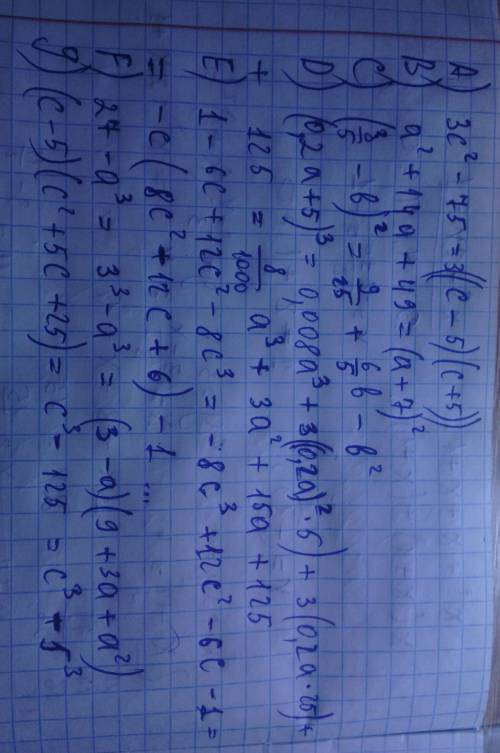 A) 3c² - 75 = 3((c - 5)(c + 5))
B) a² + 14a + 49 = (a + 7)²
C) (3/5 - b)² = 9/25 + 6/5 b - b²
D) (0,2a + 5)³ = 0,008a³ + 3((0,2a)² · 5) + 3(0,2a · 25) +
+ 125 = 8/1000 a³ + 3a² + 15a + 125
E) 1 - 6c + 12c² - 8c³ = -8c³ + 12c² - 6c - 1 =
= -c(8c² + 12c + 6) - 1 ...
F) 27 - a³ = 3³ - a³ = (3 - a)(9 + 3a + a²)
g) (c - 5)(c² + 5c + 25) = c³ - 125 = c³ - 5³